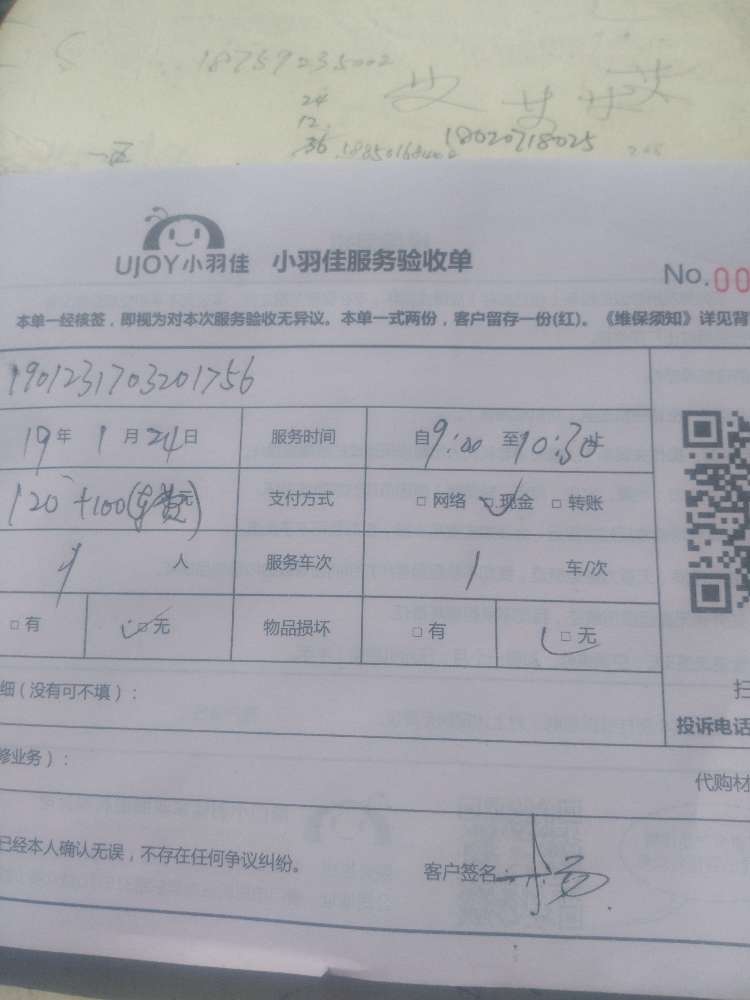 18759235002
24
12
36
18020718025
UJOY小羽佳 小羽佳服务验收单
No.00
本单一经核签，即视为对本次服务验收无异议。本单一式两份，客户留存一份(红)。《维保须知》详见背
1901231703201756
19年1月24日 服务时间 自9:00至10:30止
120+100( 费)元 支付方式 □网络 □现金 □转账
人 服务车次 1 车/次
□有 □无 物品损坏 □有 □无
细(没有可不填)：
扫
投诉电话
修业务)：
代购材
已经本人确认无误，不存在任何争议纠纷。
客户签名